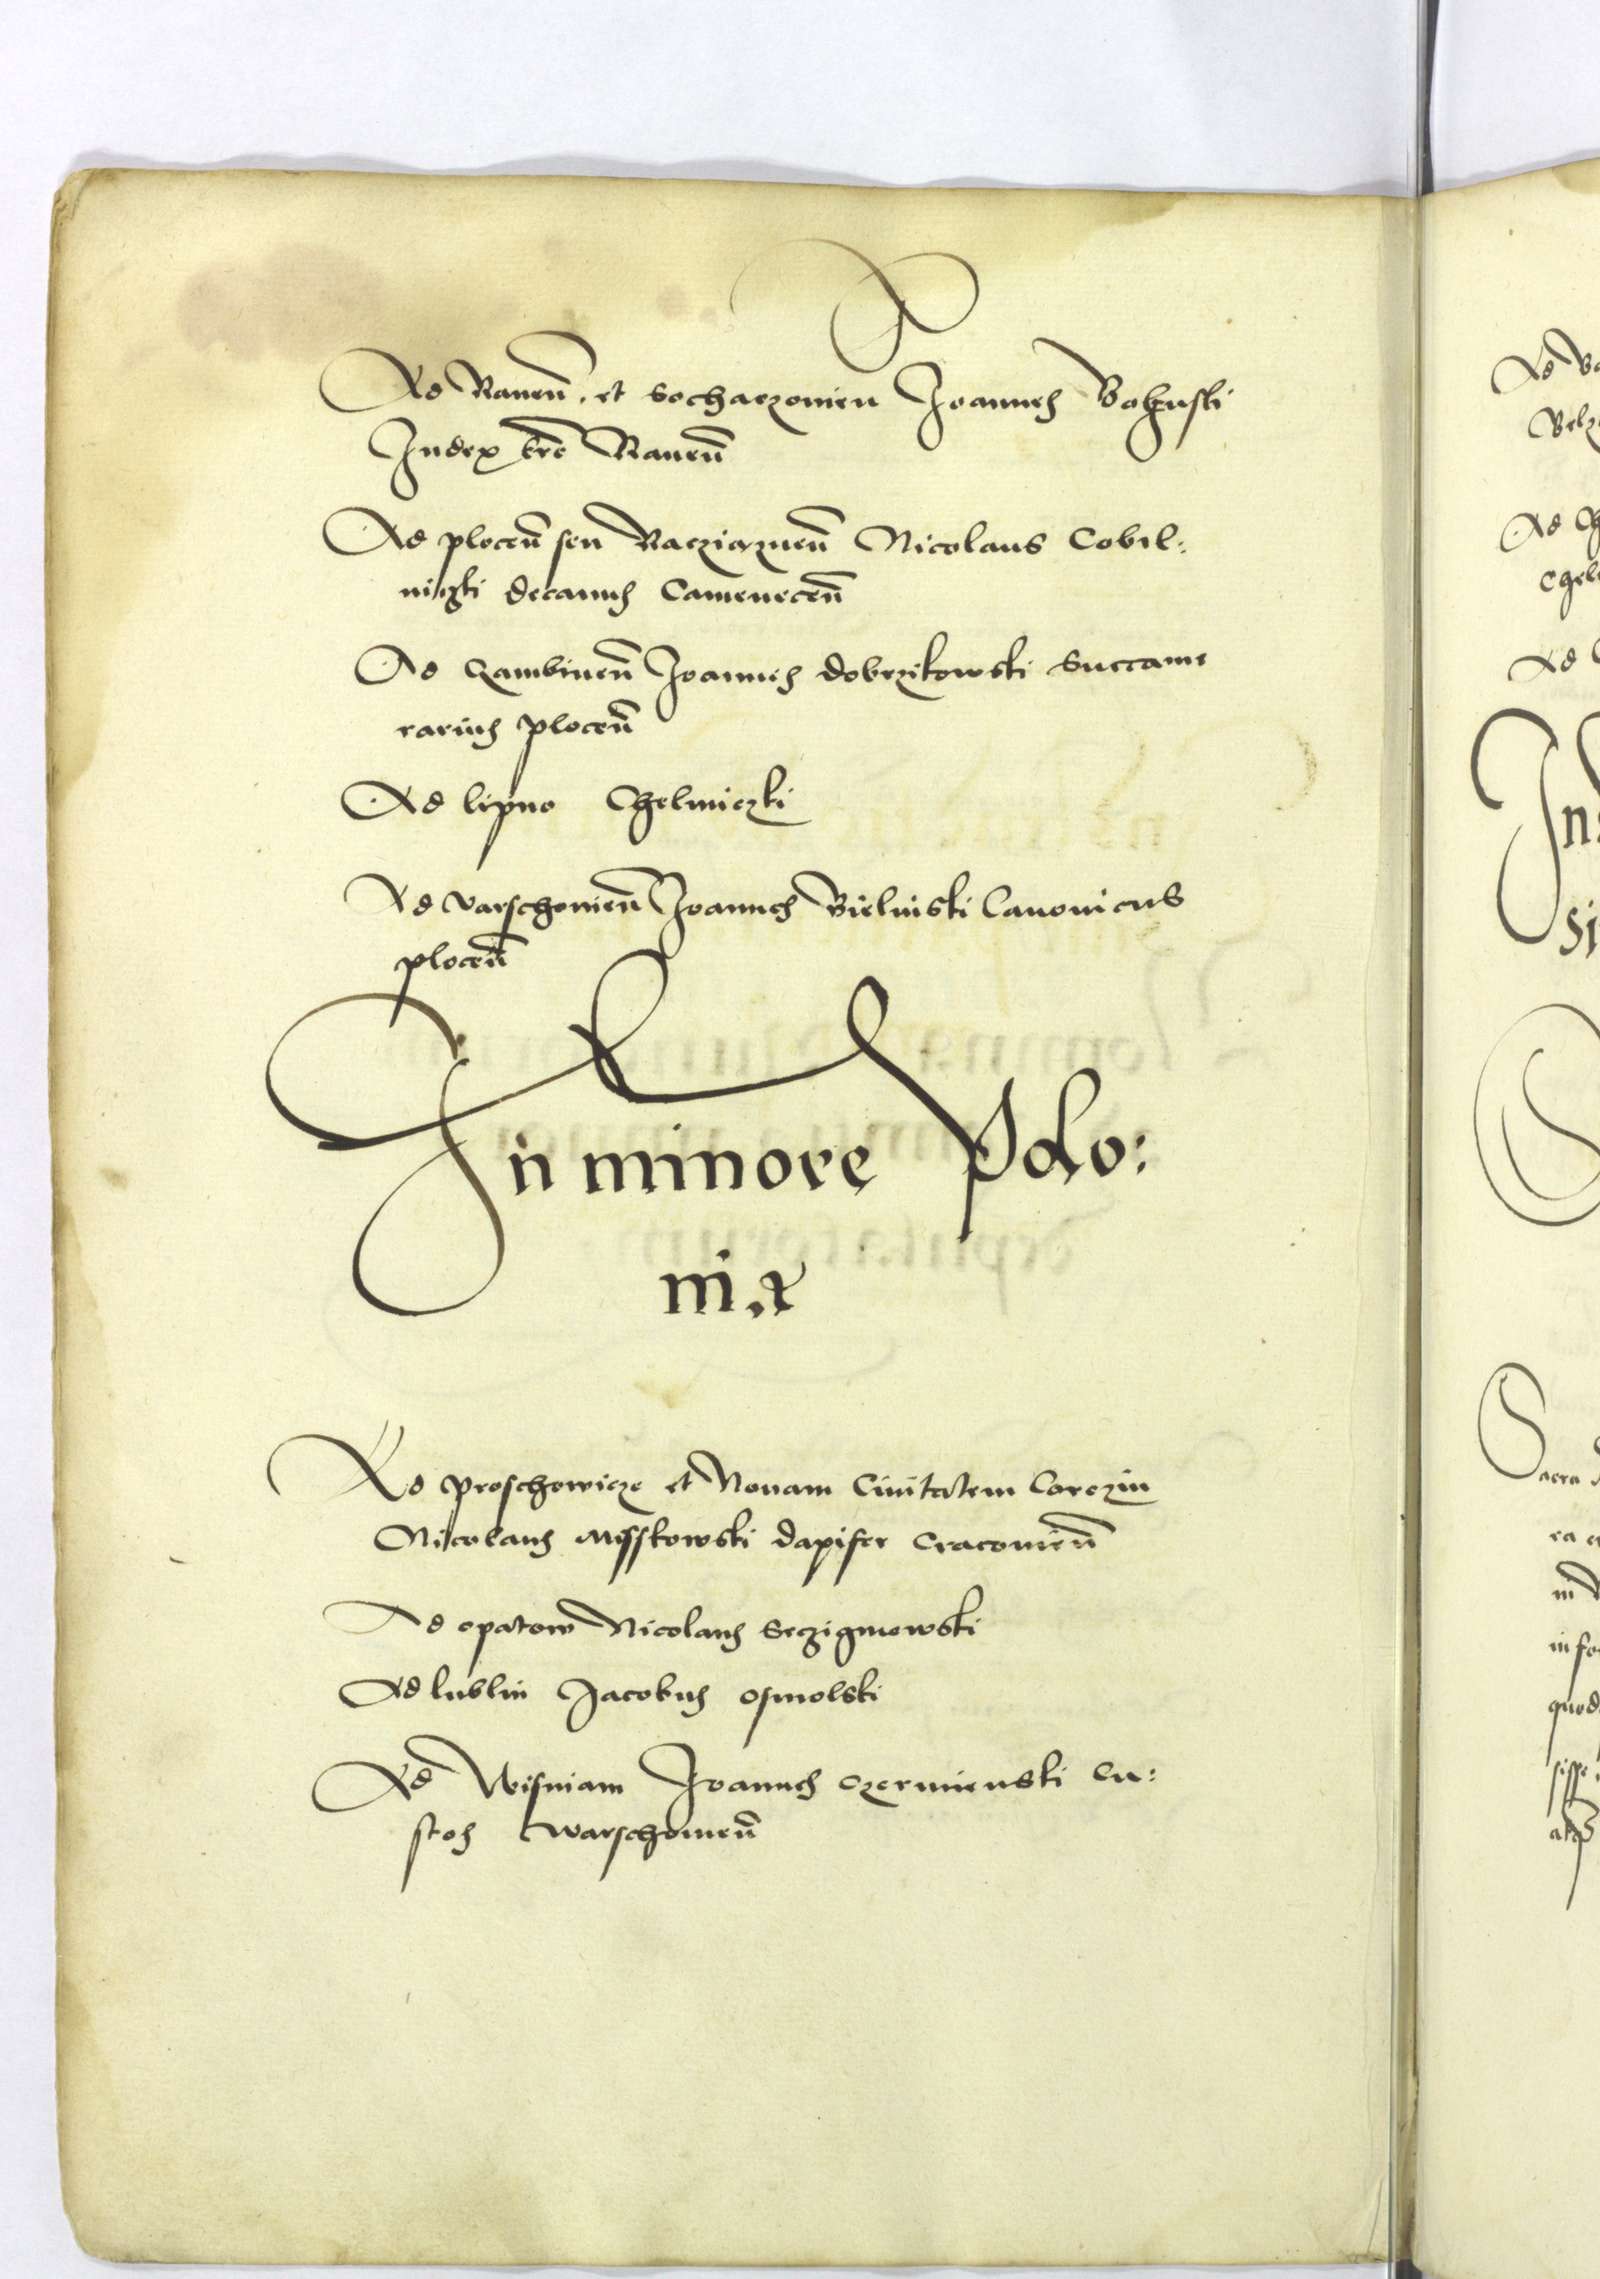 Ad Rauen̄. et Sochaczouien Joannes Bohuski
Iudex tr̄e Rauen̄
Ad plocen̄ seu Racziąznen̄ Nicolaus Cobil:
niczki decanus Camenecen̄
Ad Zambinen̄ Joannes dobrzikowski Succame
rarius plocen̄
Ad lipno Chelmiczki
Ad varschouien̄ Joannes Bielinski Canonicus
plocen̄
In minore Polo:
niæ
Ad proschowicze et Nouam Ciuitatem Corczin
Nicolaus Misskowski dapifer Cracouien̄
Ad opatow Nicolaus Seczigniowski
Ad lublin Jacobus osmolski
Ad Wisniam Joannes Czerminski Cu:
stos Warschouien̄
Ad
Ad Ch
Ad
quod